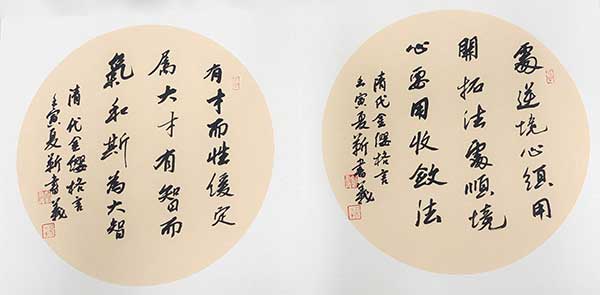 處逆境心須用
開拓法處順境
心要用收斂法
清代金纓格言
壬寅夏靳書義
有才而性緩定
属大才有智而
氣和斯為大智
清代金纓格言
壬寅夏靳書義